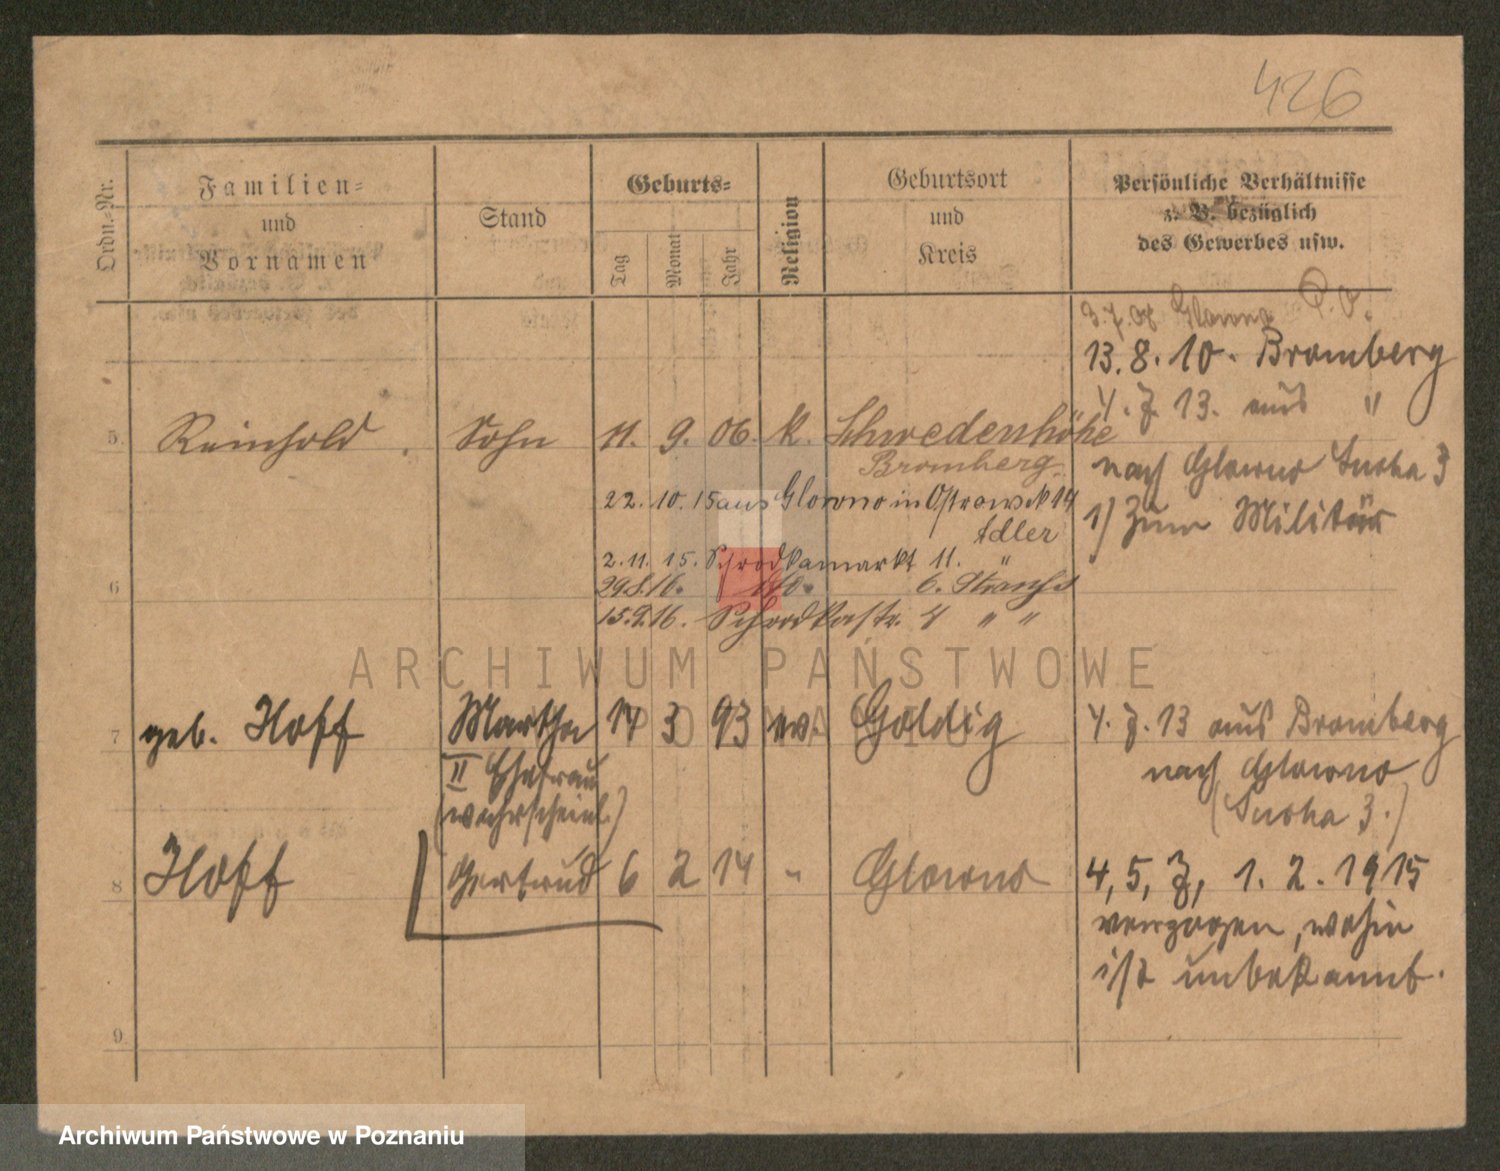 426
Ordn.-Nr.
Familien-
und
Vornamen
Stand
Geburts-
Tag
Monat
Jahr
Religion
Geburtsort
und
Kreis
Persönliche Verhältnisse
z. B. bezüglich
des Gewerbes usw.
3.7.08 Glowno
13. 8. 10. Bromberg
4. 7. 13. aus "
5. Reinhold. Sohn 11. 9. 06. k. Schwedenhöhe
Bromberg
nach Glowno Sucha 3
22. 10. 15 aus Glowno in Ostrowek 14
Adler
1) Zum Militär
2. 11. 15. Schrodkamarkt 11. "
6
29.8.16. 6.
15.9.16. Schrodkastr. 4 " "
7 geb. Hoff Martha 14 3 93 ev. Goldig 4. 7. 13 aus Bromberg
II Ehefrau
nach Glowno
(wahrscheinl.)
(Sucha 3.)
8 Hoff Gertrud 6 2 14 " Glowno 4, 5, 7, 1. 2. 1915
verzogen, wohin
ist unbekannt.
9
ARCHIWUM PAŃSTWOWE
W POZNANIU
Archiwum Państwowe w Poznaniu